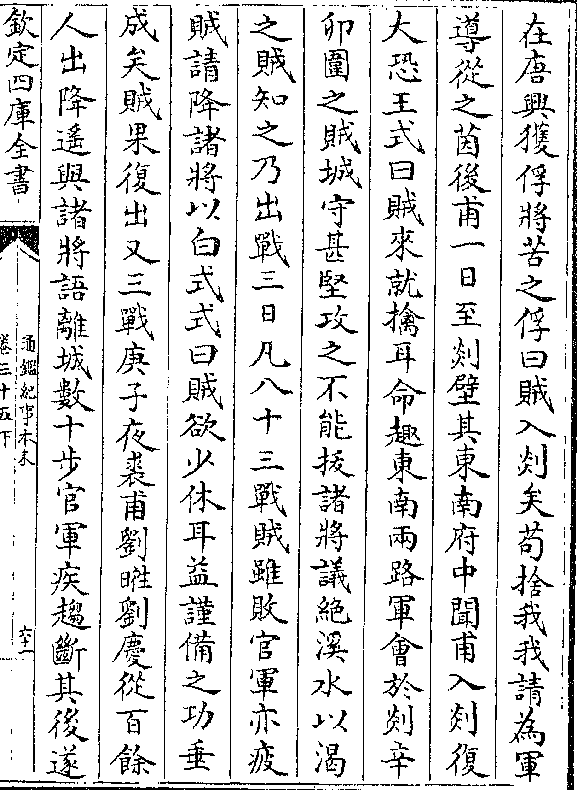 在唐興獲俘將苦之俘曰賊入剡矣苟捨我我請為軍
導從之茵後甫一日至剡壁其東南府中聞甫入剡復
大恐王式曰賊來就擒耳命趣東南兩路軍會於剡辛
卯圍之賊城守甚堅攻之不能拔諸將議絶溪水以渴
之賊知之乃出戰三日凡八十三戰賊雖敗官軍亦疲
賊請降諸將以白式式曰賊欲少休耳益謹備之功垂
成矣賊果復出又三戰庚子夜裘甫劉暀劉慶從百餘
人出降遙與諸將語離城數十步官軍疾趨斷其後遂
欽定四庫全書
通鑑紀事本末
卷三十五下
六十一